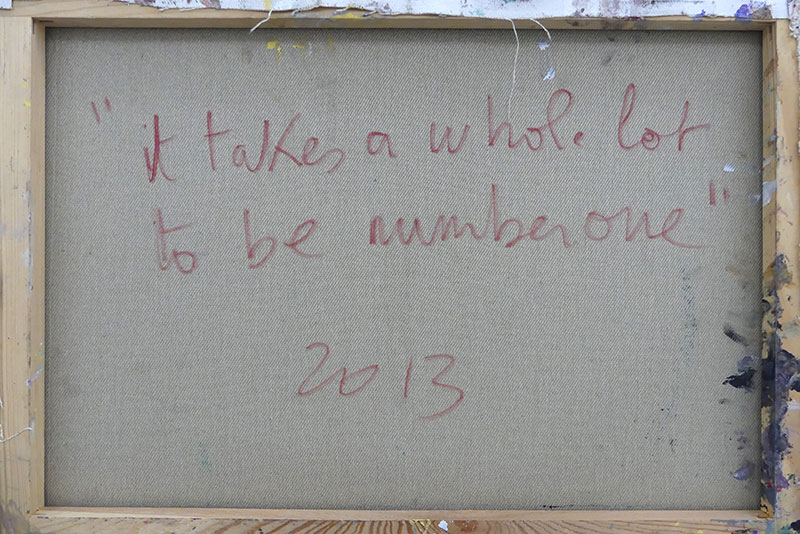 "it takes a whole lot
to be number one"
2013